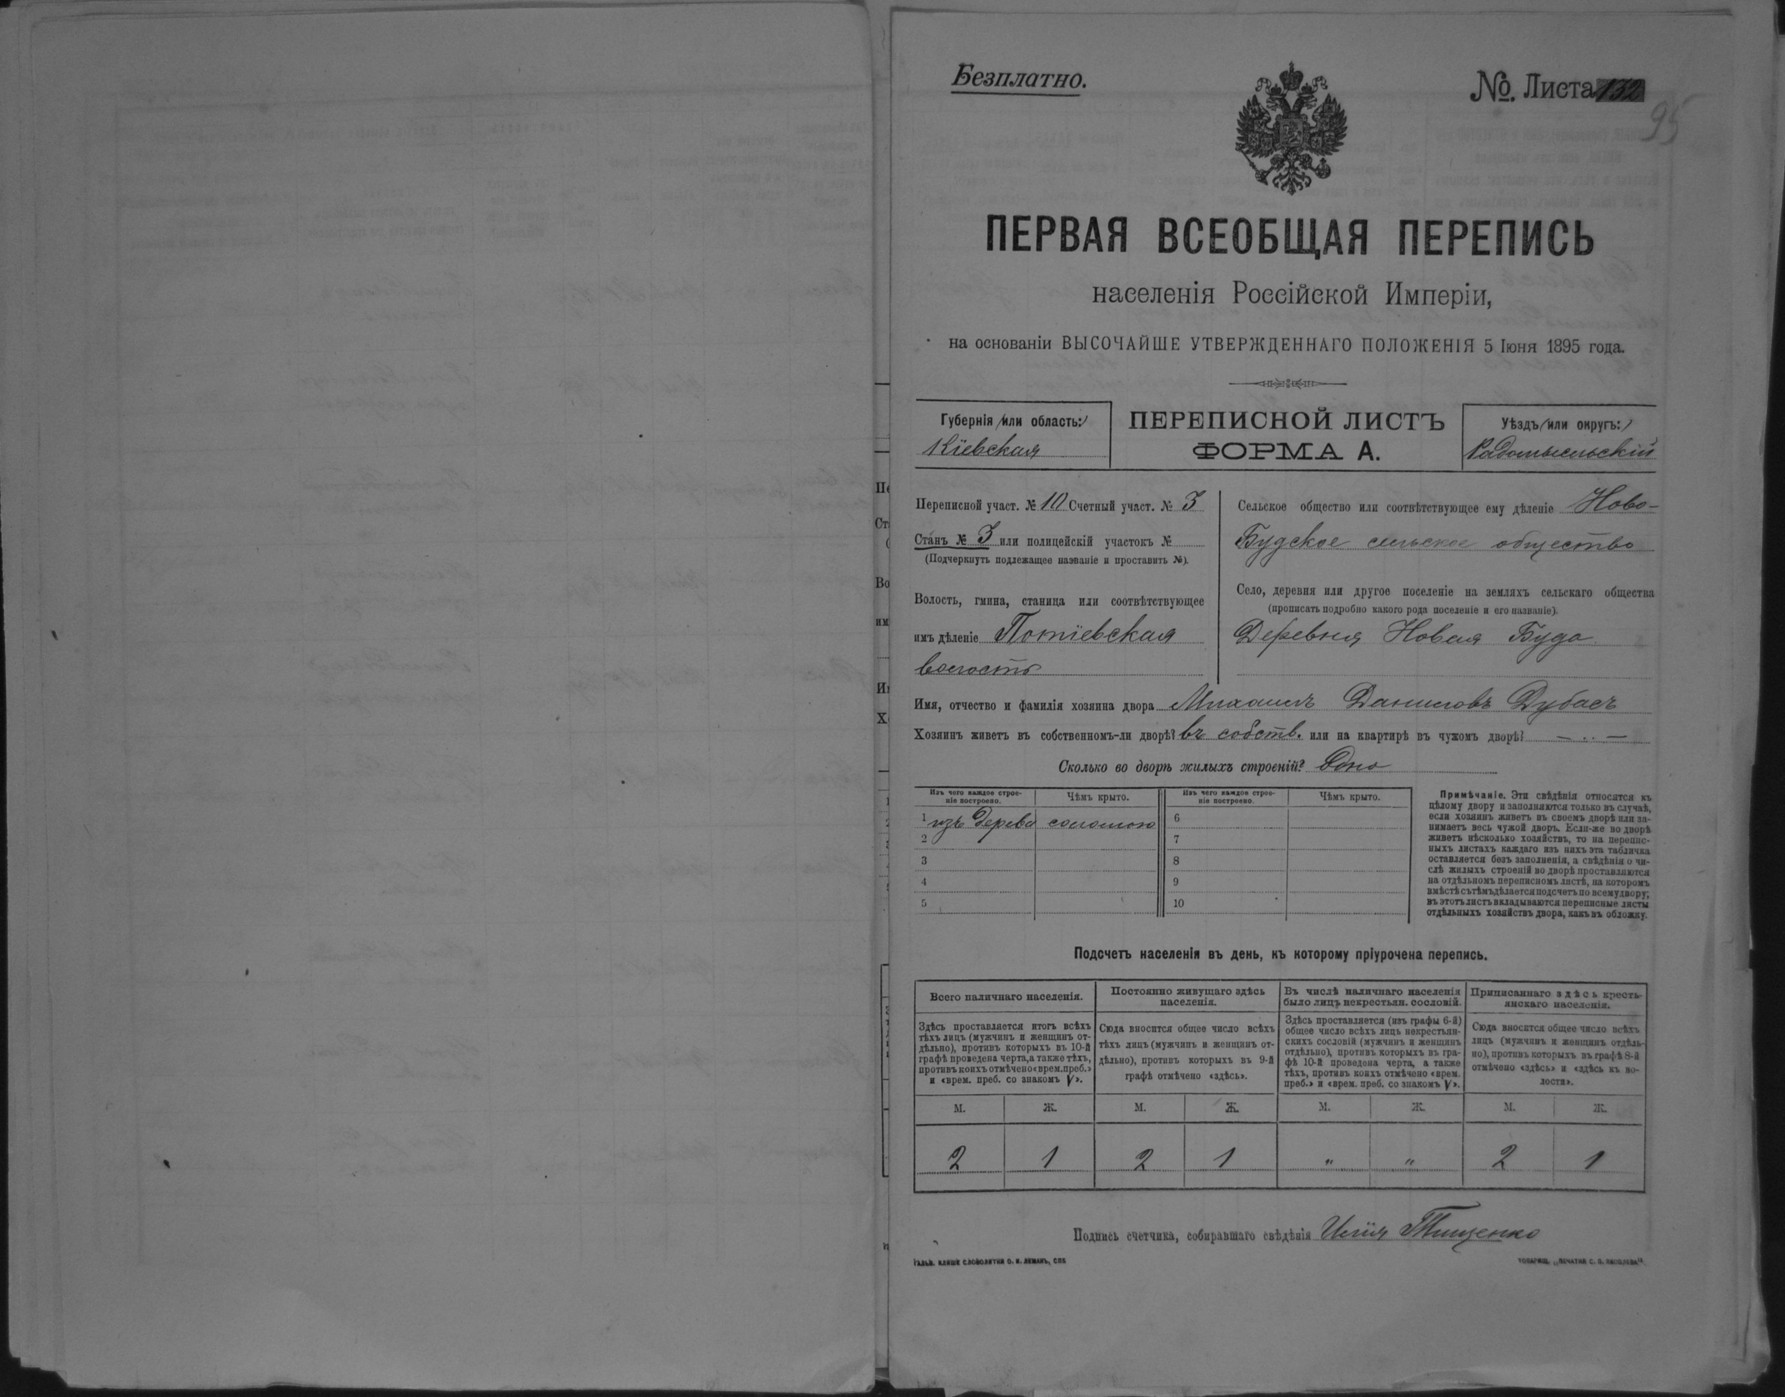 Безплатно.
№. Листа 132
95
ПЕРВАЯ ВСЕОБЩАЯ ПЕРЕПИСЬ
населенія Россійской Имперіи,
на основаніи ВЫСОЧАЙШЕ УТВЕРЖДЕННАГО ПОЛОЖЕНІЯ 5 Іюня 1895 года.
Губернія (или область:)
Кіевская
ПЕРЕПИСНОЙ ЛИСТЪ
ФОРМА А.
Уѣздъ (или округъ:)
Радомысльскій
Переписной участ. № 10 Счетный участ. № 3
Станъ № 3 или полицейскій участокъ №
(Подчеркнуть подлежащее названіе и проставить №).
Волость, гмина, станица или соотвѣтствующее
имъ дѣленіе Потіевская
волость
Сельское общество или соотвѣтствующее ему дѣленіе Ново-
Будское сельское общество
Село, деревня или другое поселеніе на земляхъ сельскаго общества
(прописать подробно какого рода поселеніе и его названіе).
Деревня Новая Буда
Имя, отчество и фамилія хозяина двора Михаилъ Даниловъ Дубасъ
Хозяинъ живетъ въ собственномъ-ли дворѣ? въ собств. или на квартирѣ въ чужомъ дворѣ? — .. —
Сколько во дворѣ жилыхъ строеній? Одно
Изъ чего каждое строе-
ніе построено.
Чѣмъ крыто.
Изъ чего каждое строе-
ніе построено.
Чѣмъ крыто.
1 изъ дерева соломою 6
2 7
3 8
4 9
5 10
Примѣчаніе. Эти свѣдѣнія относятся къ
цѣлому двору и заполняются только въ случаѣ,
если хозяинъ живетъ въ своемъ дворѣ или за-
нимаетъ весь чужой дворъ. Если-же во дворѣ
живетъ нѣсколько хозяйствъ, то на перепис-
ныхъ листахъ каждаго изъ нихъ эта табличка
оставляется безъ заполненія, а свѣдѣнія о чи-
слѣ жилыхъ строеній во дворѣ проставляются
на отдѣльномъ переписномъ листѣ, на которомъ
вмѣстѣ съ тѣмъ дѣлается подсчетъ по всему двору;
въ этотъ листъ вкладываются переписные листы
отдѣльныхъ хозяйствъ двора, какъ въ обложку.
Подсчетъ населенія въ день, къ которому пріурочена перепись.
Всего наличнаго населенія.
Здѣсь проставляется итогъ всѣхъ
тѣхъ лицъ (мужчинъ и женщинъ от-
дѣльно), противъ которыхъ въ 10-й
графѣ проведена черта, а также тѣхъ,
противъ коихъ отмѣчено «врем. преб.»
и «врем. преб. со знакомъ V».
Постоянно живущаго здѣсь
населенія.
Сюда вносится общее число всѣхъ
тѣхъ лицъ (мужчинъ и женщинъ от-
дѣльно), противъ которыхъ въ 9-й
графѣ отмѣчено «здѣсь».
Въ числѣ наличнаго населенія
было лицъ некрестьян. сословій.
Здѣсь проставляется (изъ графы 6-й)
общее число всѣхъ лицъ некрестьян-
скихъ сословій (мужчинъ и женщинъ
отдѣльно), противъ которыхъ въ гра-
фѣ 10-й проведена черта, а также
тѣхъ, противъ коихъ отмѣчено «врем.
преб.» и «врем. преб. со знакомъ V».
Приписаннаго здѣсь кресть-
янскаго населенія.
Сюда вносится общее число всѣхъ
лицъ (мужчинъ и женщинъ отдѣль-
но), противъ которыхъ въ графѣ 8-й
отмѣчено «здѣсь» и «здѣсь къ во-
лости».
М. Ж. М. Ж. М. Ж. М. Ж.
2 1 2 1 „ „ 2 1
Подпись счетчика, собиравшаго свѣдѣнія Илія Тищенко
ГАЛЬВ. КЛИШЕ СЛОВОЛИТНИ О. И. ЛЕМАНЪ, СПБ
ТОВАРИЩ. „ПЕЧАТНЯ С. П. ЯКОВЛЕВА“.